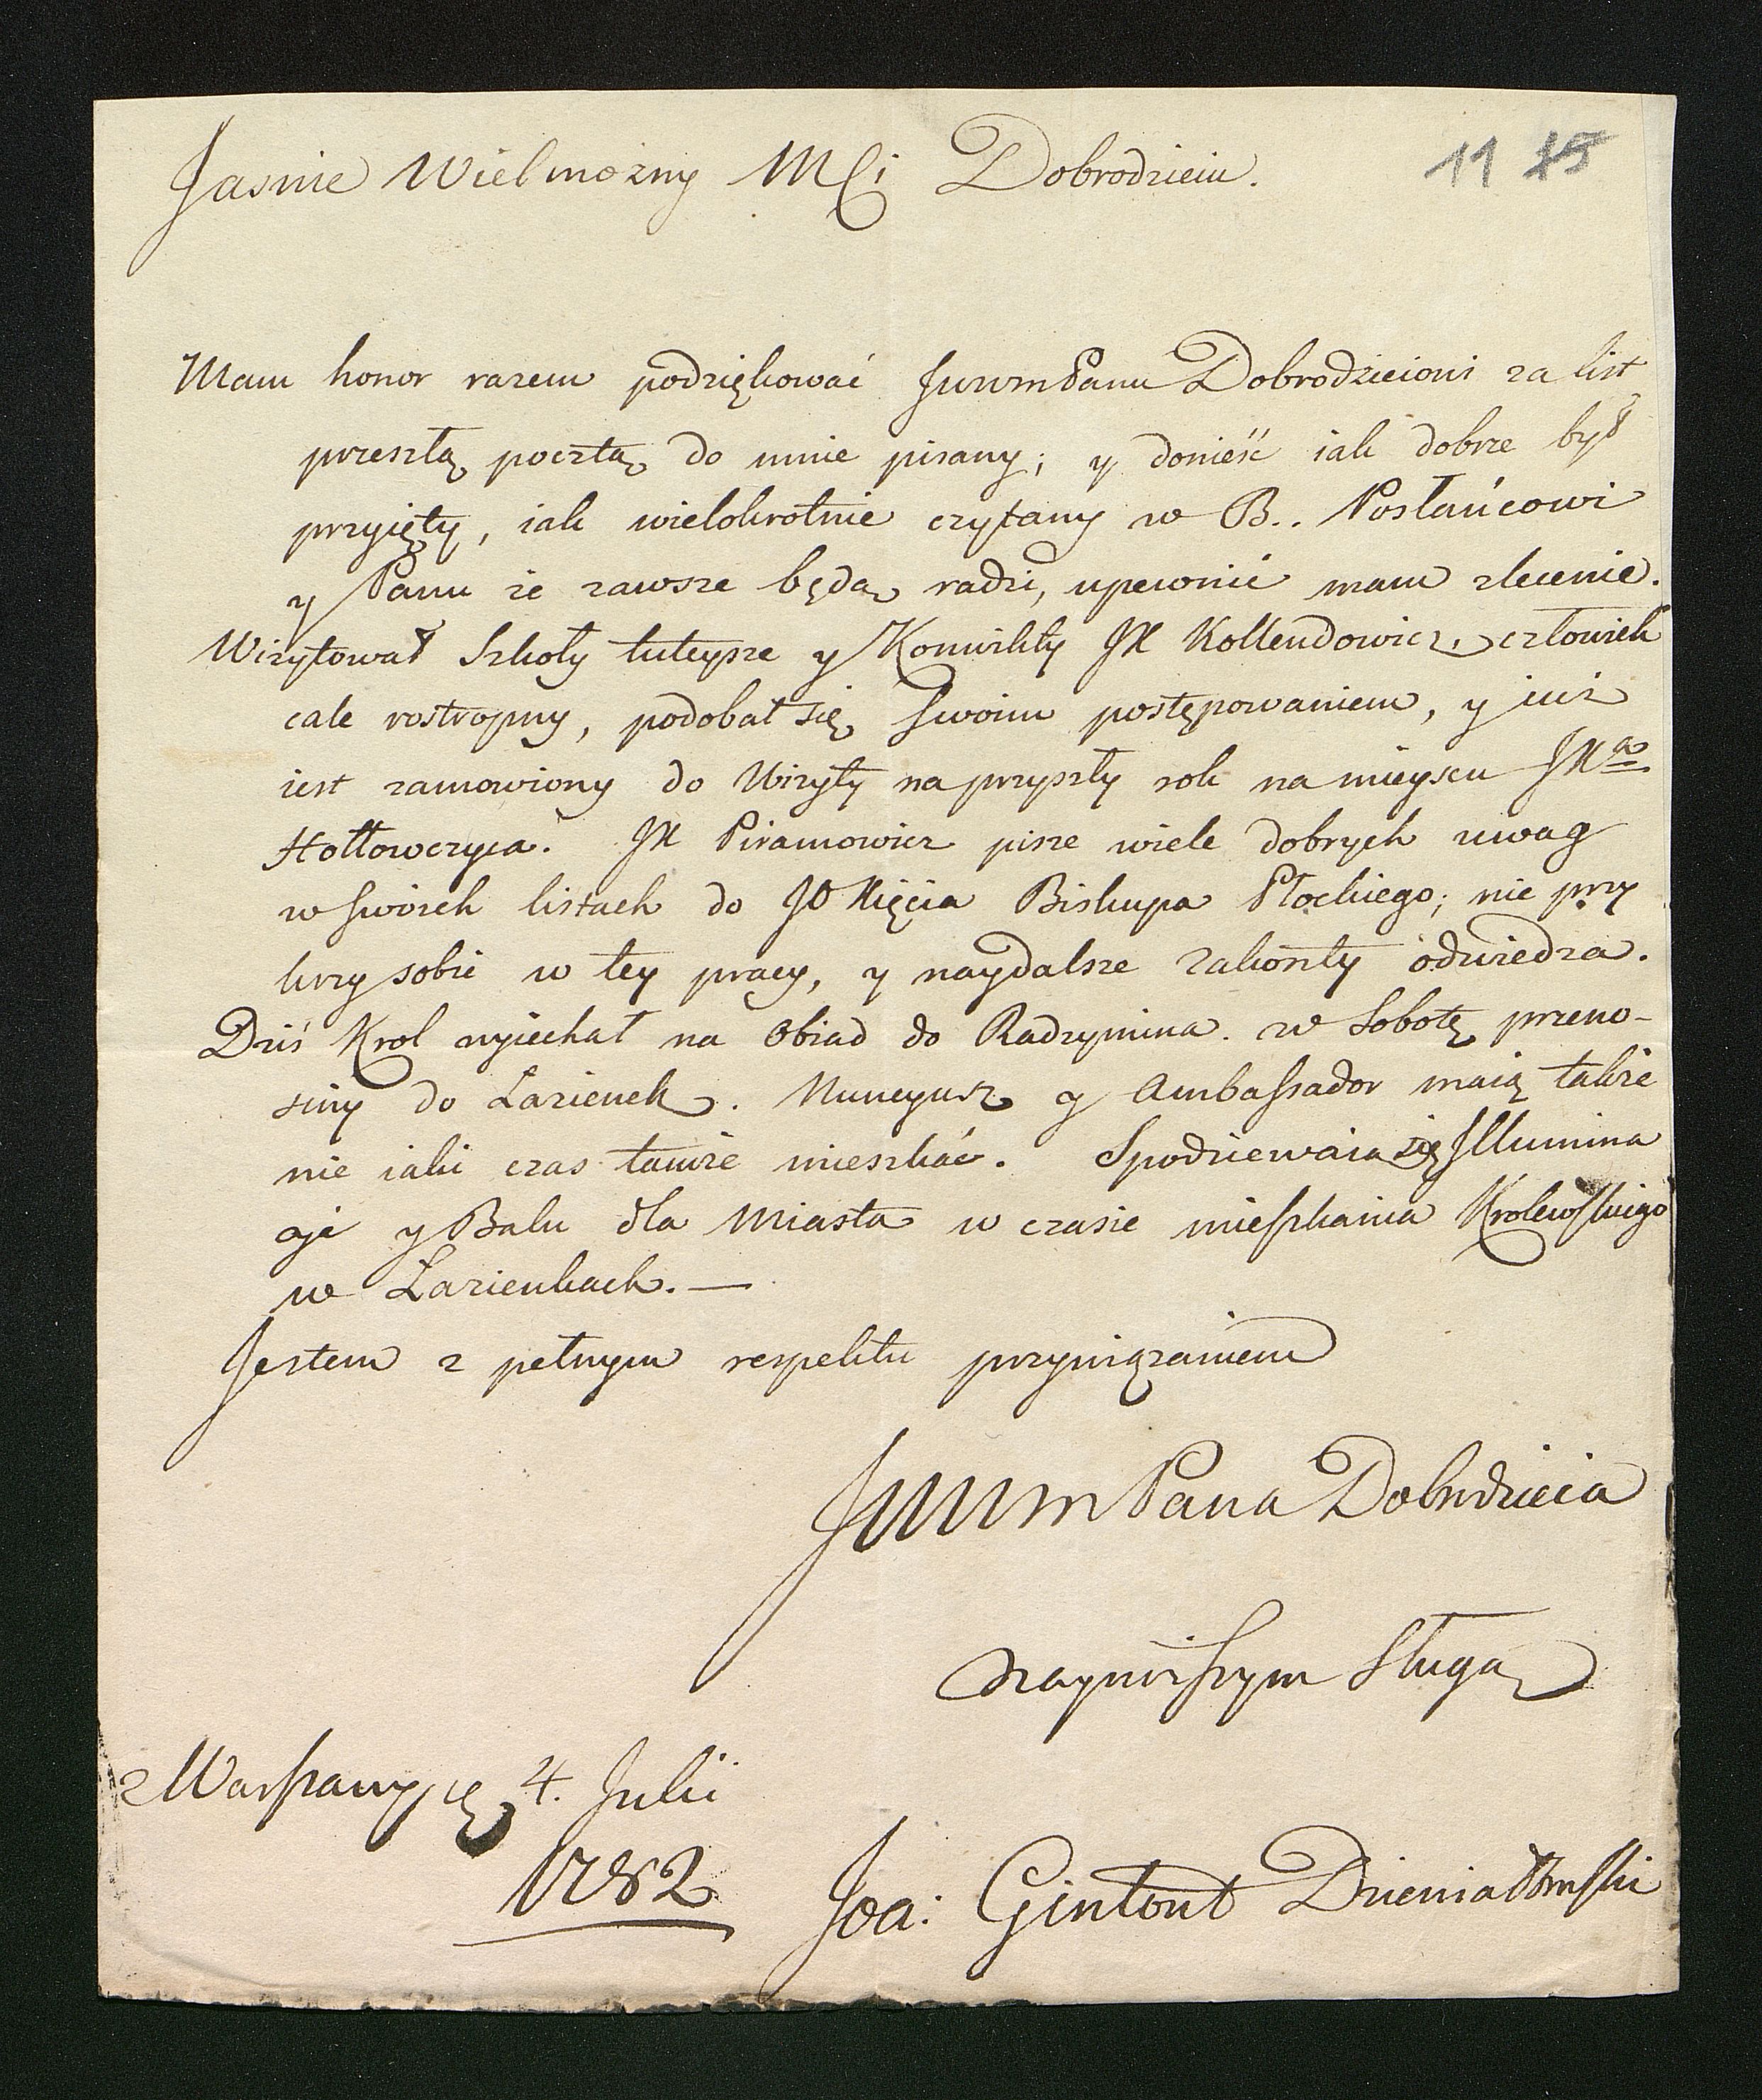 Jasnie Wielmożny Mci Dobrodzieiu.
11 85
Mam honor razem podziękować JWWmPanu Dobrodzieiowi za list
przeszłą pocztą do mnie pisany; y donieść iak dobrze był
przyięty, iak wielokrotnie czytany w B.. Posłańcowi
y Panu że zawsze będą radzi, upewnić mam zlecenie.
Wizytował Szkoły tuteysze y Konwikty JX Kollendowicz, człowiek
cale rostropny, podobał się swoim postępowaniem, y iuż
iest zamowiony do Wizyty na przyszły rok na mieyscu JXa
Hołłowczyca. JX Piramowicz pisze wiele dobrych uwag
w swoich listach do JO Xięcia Biskupa Płockiego; nie przy
krzy sobie w tey pracy, y naydalsze zakonty odwiedza.
Dziś Krol wyiechał na Obiad do Radzymina. w Sobotę przeno-
siny do Łazienek. Nuncyusz y Ambassador maią także
nie iaki czas tamże mieszkać. Spodziewaia się Illumina
cyi y Balu dla Miasta w czasie mieszkania Krolewskiego
w Łazienkach. —
Jestem z pełnym respektu przywiązaniem
JWWmPana Dobrodzieia
naynizszym Sługą
z Warszawy 4. Julii
1782
Joa: Gintowt Dziewiałtowski